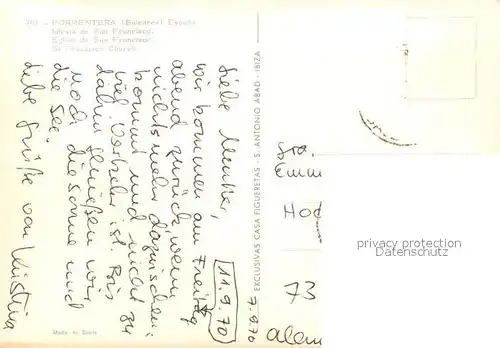 FORMENTERA (Baleares) España
Iglesia de San Francisco.
Eglise de San Francisco
St Francisco Church.
liebe Mutter,
wir kommen am Freitag
abend zurück, wenn
nichts mehr dazwischen
kommt und nicht zu
viel Verkehr ist. Bis
dahin genießen wir
noch die Sonne und
die See.
liebe Grüße von Kristina
11.9.70
7.9.70
EXCLUSIVAS CASA FIGUERETAS - S. ANTONIO ABAD - IBIZA
Made in Spain
Sra.
Emm
Hod
73
alem
privacy protection
Datenschutz